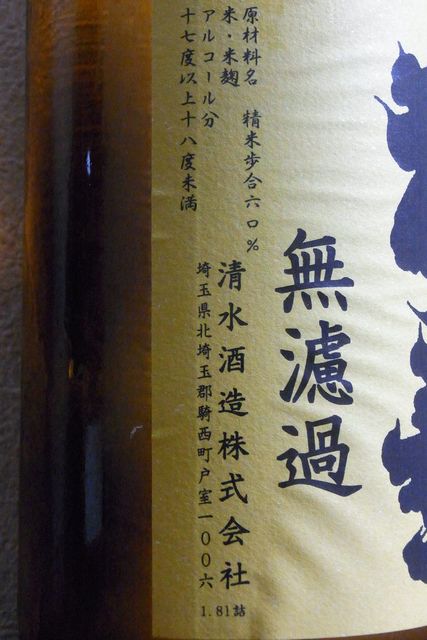 無濾過
原材料名 精米歩合六〇%
米・米麹
アルコール分
十七度以上十八度未満
清水酒造株式会社
埼玉県北埼玉郡騎西町戸室一〇〇六
1.8l詰